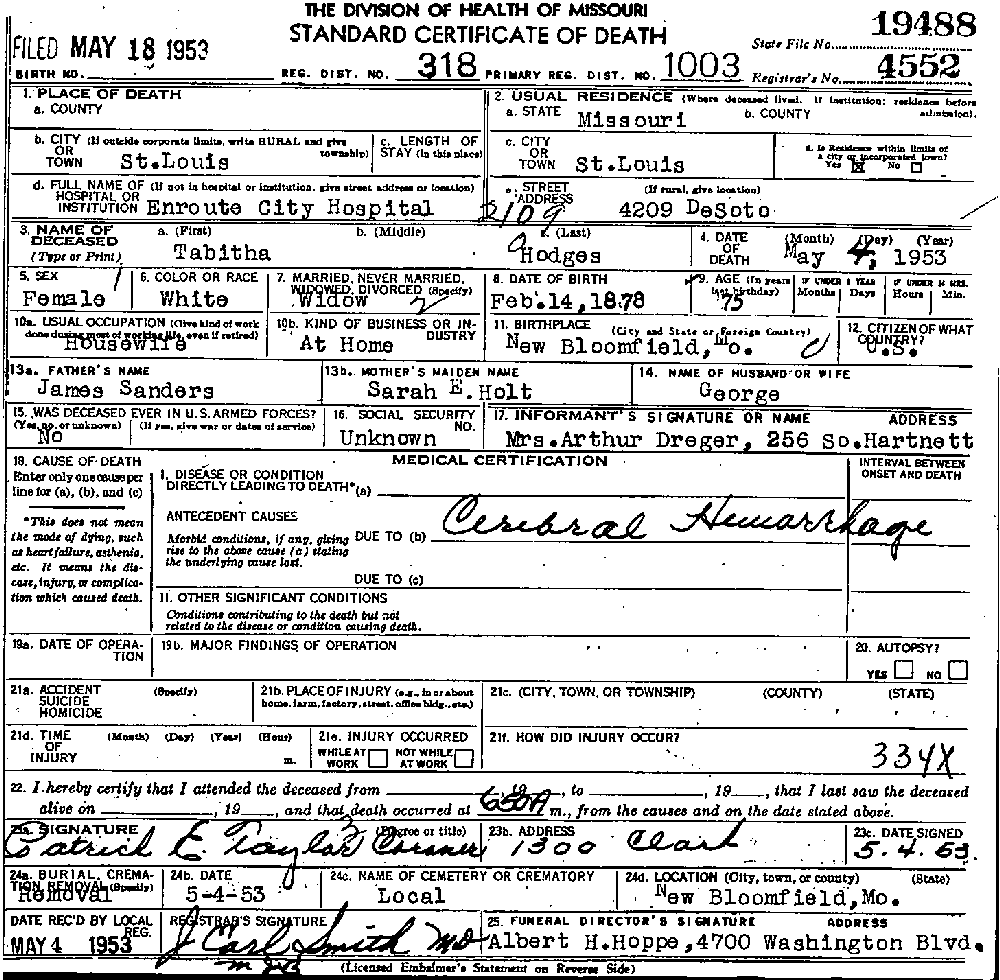 THE DIVISION OF HEALTH OF MISSOURI
STANDARD CERTIFICATE OF DEATH
FILED MAY 18 1953
State File No. 19488
BIRTH NO. REG. DIST. NO. 318 PRIMARY REG. DIST. NO. 1003 Registrar's No. 4552
1. PLACE OF DEATH
a. COUNTY
2. USUAL RESIDENCE (Where deceased lived. If institution: residence before admission).
a. STATE Missouri b. COUNTY
b. CITY (If outside corporate limits, write RURAL and give township) OR TOWN St.Louis
c. LENGTH OF STAY (in this place)
c. CITY OR TOWN St.Louis
d. Is Residence within limits of a city or incorporated town? Yes ☒ No ☐
d. FULL NAME OF (If not in hospital or institution, give street address or location) HOSPITAL OR INSTITUTION Enroute City Hospital
e. STREET ADDRESS (If rural, give location) 4209 DeSoto
2109
3. NAME OF DECEASED (Type or Print)
a. (First) Tabitha
b. (Middle)
c. (Last) Hodges
4. DATE OF DEATH (Month) (Day) (Year) May 4, 1953
5. SEX Female
6. COLOR OR RACE White
7. MARRIED, NEVER MARRIED, WIDOWED, DIVORCED (Specify) Widow 2
8. DATE OF BIRTH Feb.14,1878
9. AGE (In years last birthday) 75
IF UNDER 1 YEAR Months Days
IF UNDER 24 HRS. Hours Min.
10a. USUAL OCCUPATION (Give kind of work done during most of working life, even if retired) Housewife
10b. KIND OF BUSINESS OR INDUSTRY At Home
11. BIRTHPLACE (City and State or Foreign Country) New Bloomfield,Mo.
12. CITIZEN OF WHAT COUNTRY? U.S.
13a. FATHER'S NAME James Sanders
13b. MOTHER'S MAIDEN NAME Sarah E.Holt
14. NAME OF HUSBAND OR WIFE George
15. WAS DECEASED EVER IN U.S. ARMED FORCES? (Yes, no, or unknown) (If yes, give war or dates of service) No
16. SOCIAL SECURITY NO. Unknown
17. INFORMANT'S SIGNATURE OR NAME ADDRESS
Mrs.Arthur Dreger, 256 So.Hartnett
18. CAUSE OF DEATH
Enter only one cause per line for (a), (b), and (c)
*This does not mean the mode of dying, such as heart failure, asthenia, etc. It means the disease, injury, or complication which caused death.
MEDICAL CERTIFICATION
INTERVAL BETWEEN ONSET AND DEATH
I. DISEASE OR CONDITION DIRECTLY LEADING TO DEATH* (a)
ANTECEDENT CAUSES
Morbid conditions, if any, giving rise to the above cause (a) stating the underlying cause last.
DUE TO (b) Cerebral Hemarrhage
DUE TO (c)
II. OTHER SIGNIFICANT CONDITIONS
Conditions contributing to the death but not related to the disease or condition causing death.
19a. DATE OF OPERATION
19b. MAJOR FINDINGS OF OPERATION
20. AUTOPSY? YES ☐ NO ☐
21a. ACCIDENT SUICIDE HOMICIDE (Specify)
21b. PLACE OF INJURY (e.g., in or about home, farm, factory, street, office bldg., etc.)
21c. (CITY, TOWN, OR TOWNSHIP) (COUNTY) (STATE)
21d. TIME OF INJURY (Month) (Day) (Year) (Hour) m.
21e. INJURY OCCURRED WHILE AT WORK ☐ NOT WHILE AT WORK ☐
21f. HOW DID INJURY OCCUR?
334X
22. I hereby certify that I attended the deceased from , 19 , to , 19 , that I last saw the deceased
alive on , 19 , and that death occurred at 650A m., from the causes and on the date stated above.
23a. SIGNATURE (Degree or title) Patrick E Taylor Coroner
23b. ADDRESS 1300 Clark
23c. DATE SIGNED 5.4.53.
24a. BURIAL, CREMATION, REMOVAL (Specify) Removal
24b. DATE 5-4-53
24c. NAME OF CEMETERY OR CREMATORY Local
24d. LOCATION (City, town, or county) (State) New Bloomfield,Mo.
DATE REC'D BY LOCAL REG. MAY 4 1953
REGISTRAR'S SIGNATURE J Carl Smith MD
25. FUNERAL DIRECTOR'S SIGNATURE ADDRESS
Albert H.Hoppe,4700 Washington Blvd.
(Licensed Embalmer's Statement on Reverse Side)